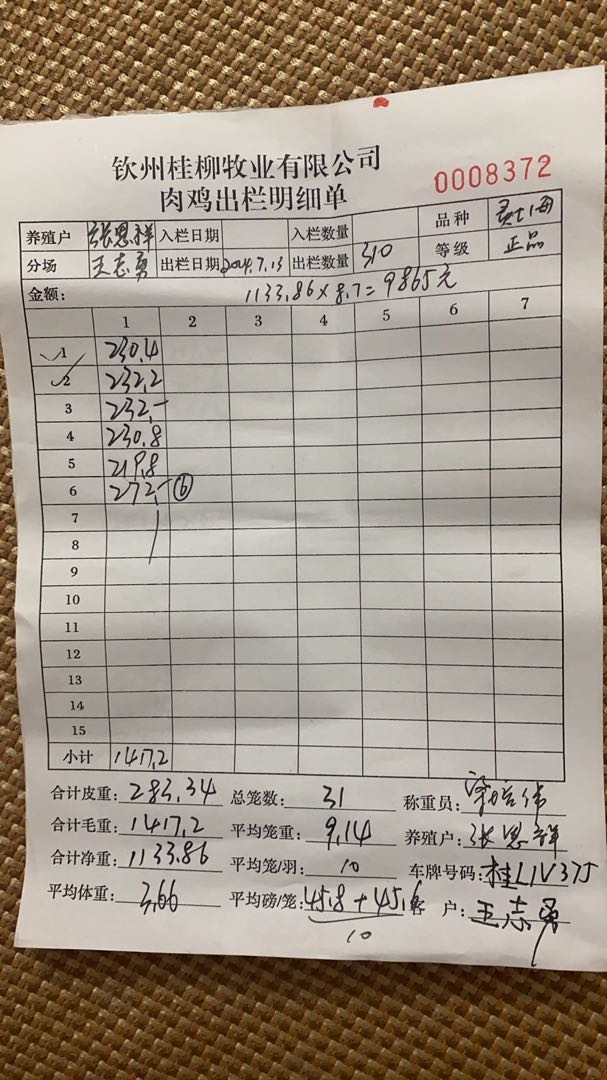 钦州桂柳牧业有限公司
肉鸡出栏明细单
0008372
养殖户 张恩祥 入栏日期 入栏数量 品种
分场 王志勇 出栏日期 2024.7.13 出栏数量 310 等级 正品
金额: 1133.86×8.7=9865元
1 2 3 4 5 6 7
1 230.4
2 232.2
3 232.-
4 230.8
5 219.8
6 272.- ⑥
7
8
9
10
11
12
13
14
15
小计 1417.2
合计皮重: 283.34 总笼数: 31 称重员:
合计毛重: 1417.2 平均笼重: 9.14 养殖户: 张恩祥
合计净重: 1133.86 平均笼/羽: 10 车牌号码: 桂L1V375
平均体重: 3.66 平均磅/笼: 45.8+45.6 客 户: 王志勇
10